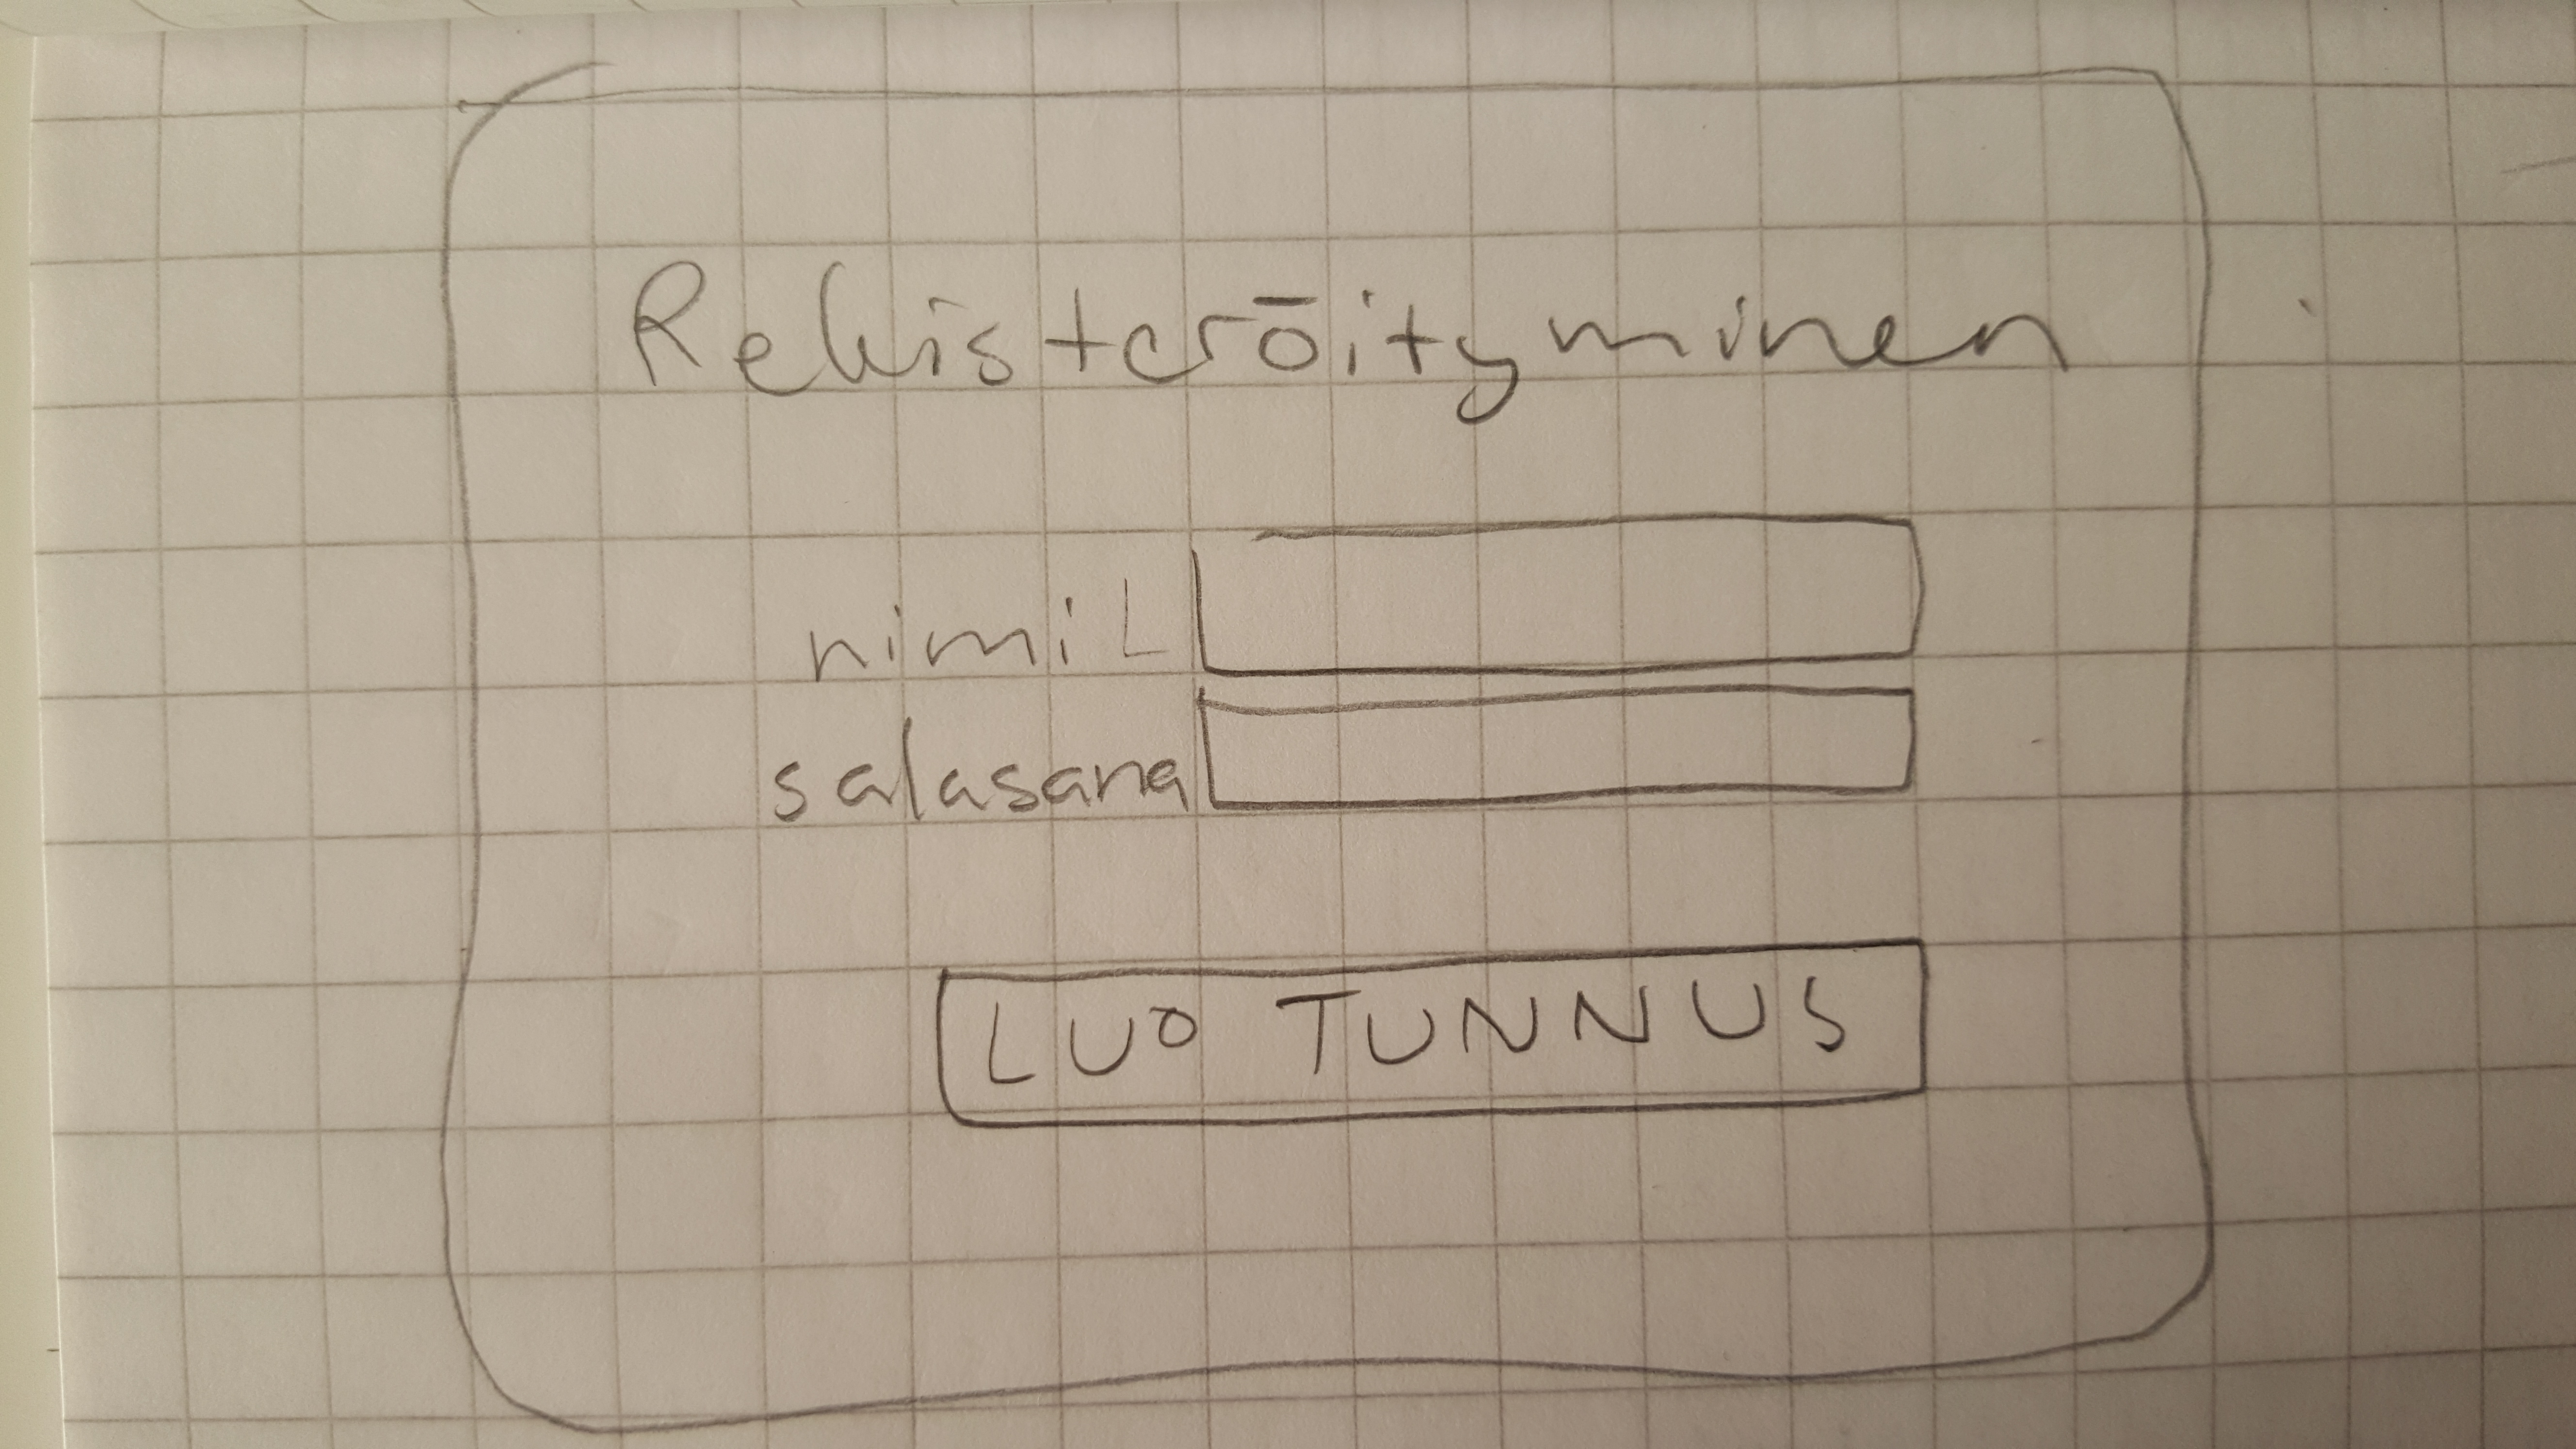 Rekisteröityminen
nimi
salasana
LUO TUNNUS